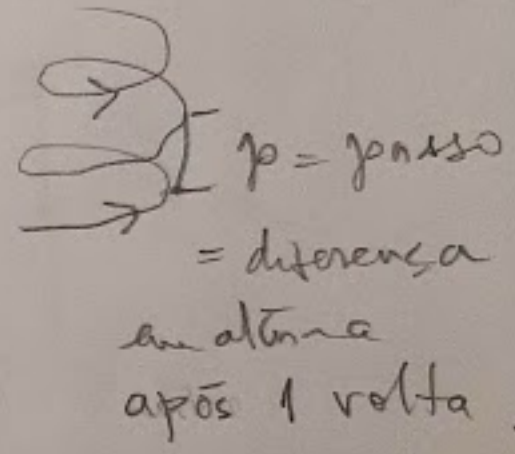 p = passo
= diferença
em altura
após 1 volta